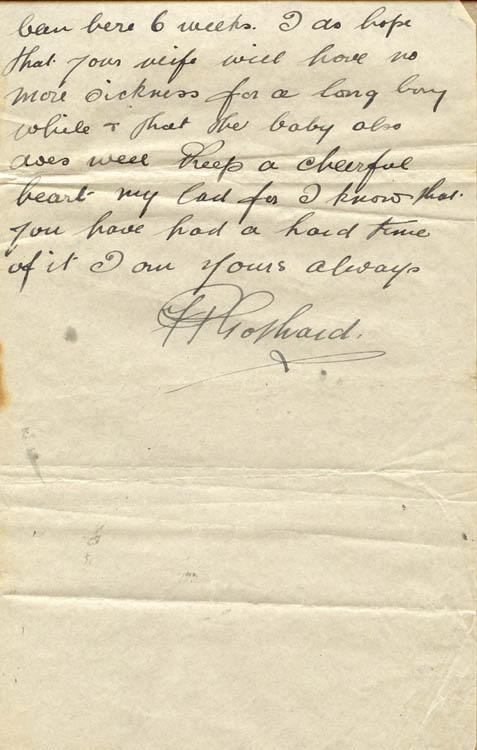 been here 6 weeks. I do hope
that your wife will have no
more sickness for a long long
while & that the baby also
does well Keep a cheerful
heart my lad for I know that
you have had a hard time
of it I am yours always
Gothard.